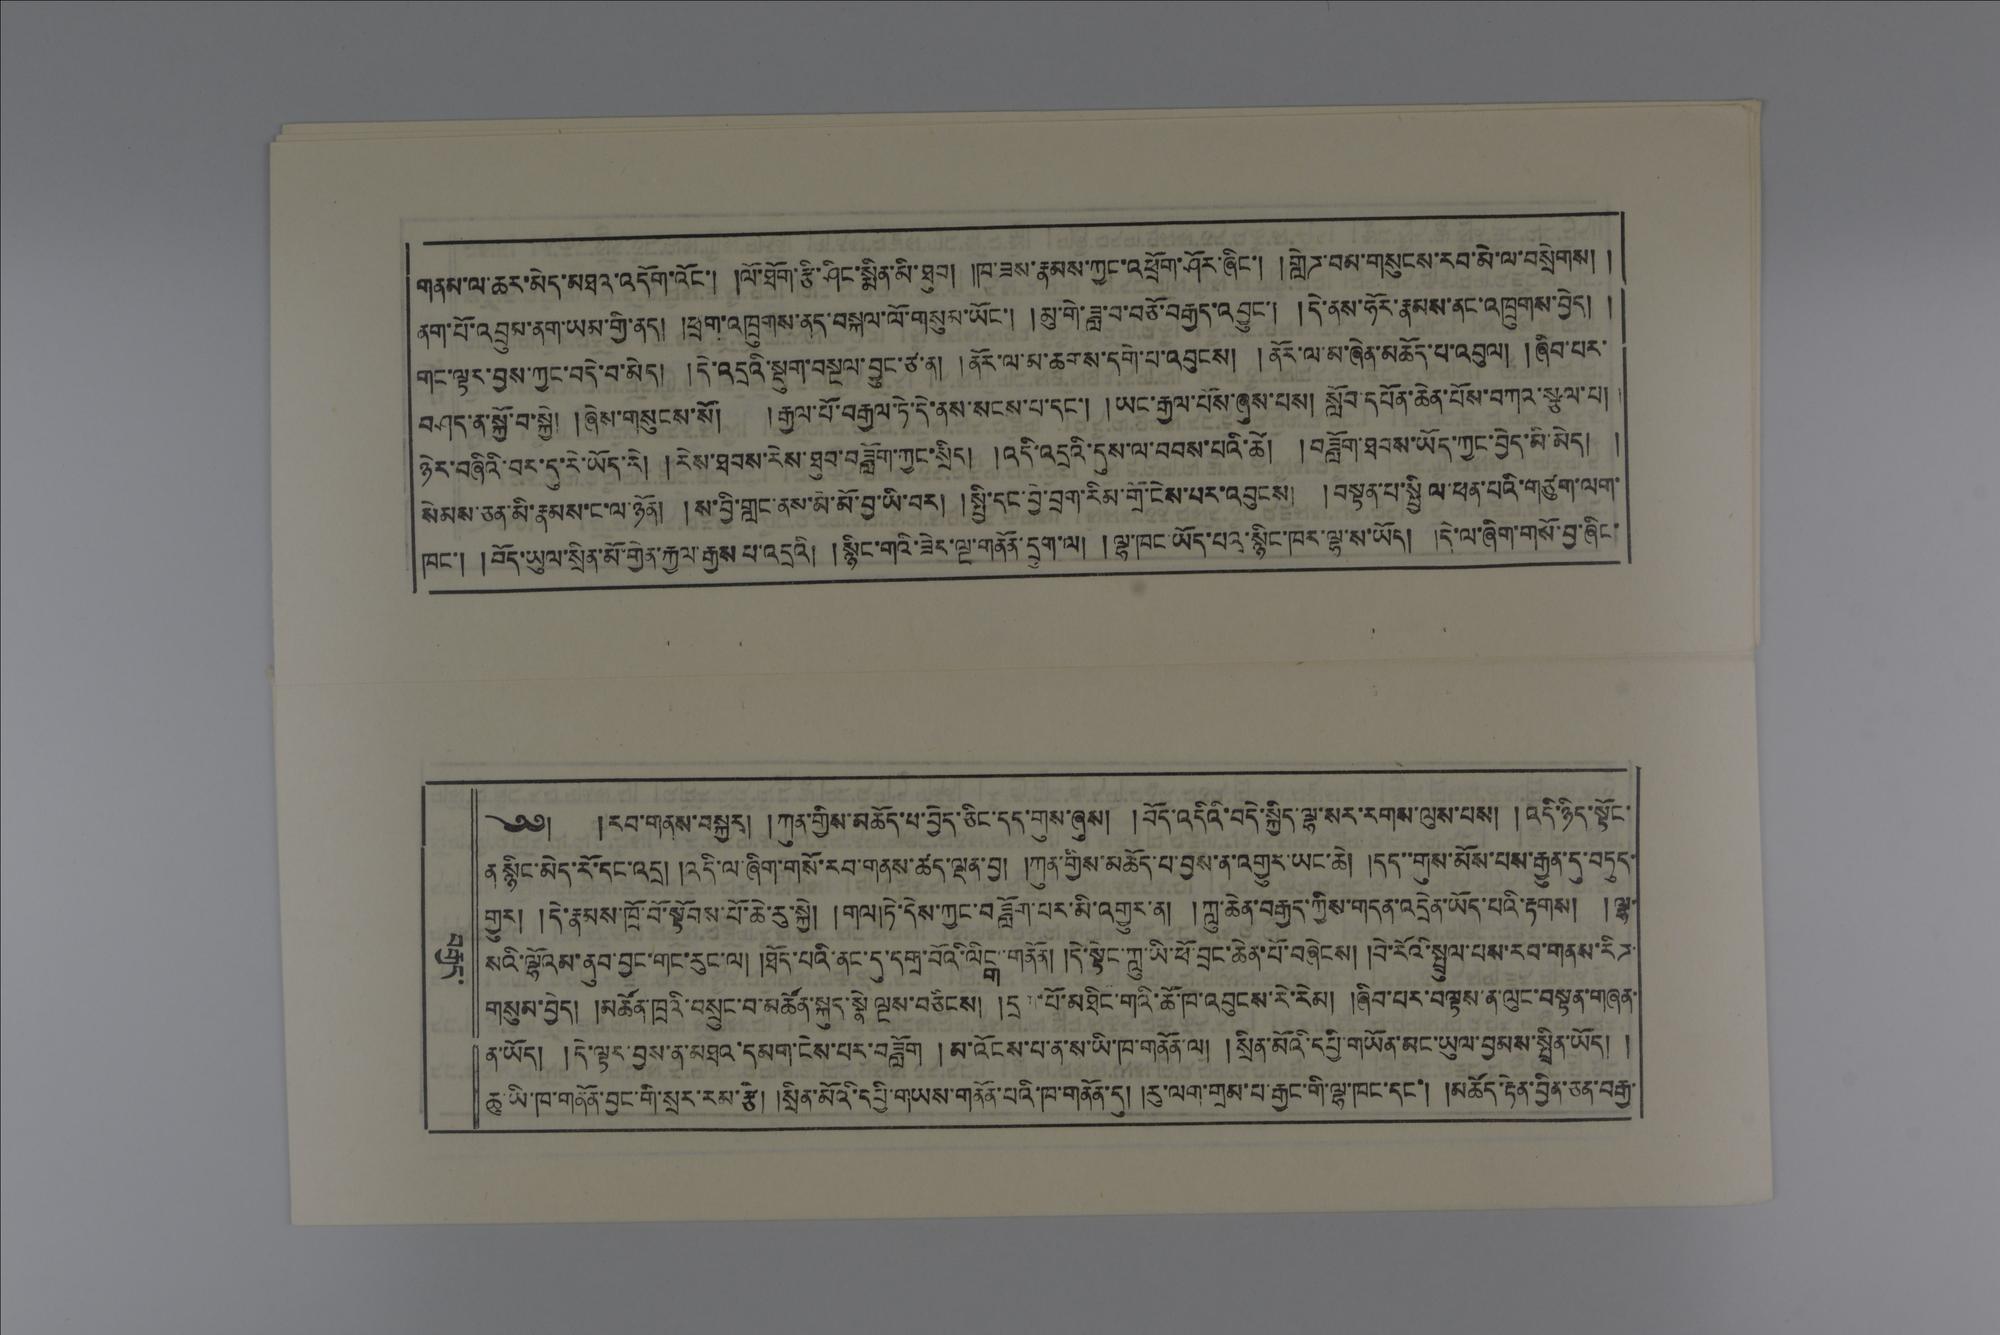 གནམ་ལ་ཆར་མེད་མཐའ་འདོག་འོང་། །ལོ་ཐོག་རྩི་ཤིང་སྨིན་མི་ཐུབ། །ཁ་ཟས་རྣམས་ཀྱང་འཕྲོག་ཤོར་ཞིང་། །གླེཊ་བམ་གསུངས་རབ་མེ་ལ་བསྲེགས། །
ནག་པོ་འབྲུམ་ནག་ཡམ་གྱི་ནད། །ཕྲག་འཁྲུགས་ནད་བསྐལ་ལོ་གསུམ་ཡོང་། །མུ་གེ་ཟླ་བ་བཅོ་བརྒྱད་འབྱུང་། །དེ་ནས་ཧོར་རྣམས་ནང་འཁྲུགས་བྱེད། །
གང་ལྟར་བྱས་ཀྱང་བདེ་བ་མེད། །དེ་འདྲའི་སྡུག་བསྔལ་བྱུང་ཙ་ན། །ནོར་ལ་མ་ཆགས་དགེ་བ་འབུངས། །ནོར་ལ་མ་ཞེན་མཆོད་པ་འབུལ། །ཞིབ་པར་
བཤད་ན་སྐྱོ་བ་སྐྱེ། །ཞེས་གསུངས་སོ། །རྒྱལ་པོ་བརྒྱལ་ཏེ་དེ་ནས་སངས་པ་དང་། །ཡང་རྒྱལ་པོས་ཞུས་པས། སློབ་དཔོན་ཆེན་པོས་བཀའ་སྩལ་པ། །
ཉེར་བཞིའི་བར་དུ་རེ་ཡོད་རེ། །རེས་ཐབས་རེས་ཐུབ་བཟློག་ཀྱང་སྲིད། །འདི་འདྲའི་དུས་ལ་བབས་པའི་ཚོ། །བཟློག་ཐབས་ཡོད་ཀྱང་བྱེད་མི་མེད། །
སེམས་ཅན་མི་རྣམས་ང་ལ་ཉོན། །ས་བྱི་གླང་ནས་མེ་མོ་བྱ་ཡི་བར། །སྤྱི་དང་བྱེ་བྲག་རིམ་གྲོ་ངེས་པར་འབུངས། །བསྟན་པ་སྤྱི་ལ་ཕན་པའི་གཙུག་ལག་
ཁང་། །བོད་ཡུལ་སྲིན་མོ་གྱེན་རྐྱལ་རྒྱས་པ་འདྲའི། །སྙིང་གའི་ཟེར་ལྔ་གནོན་དྲུག་ལ། །ལྷ་ཁང་ཡོད་པའ་སྙིང་ཁར་ལྷ་ས་ཡོད། །དེ་ལ་ཞིག་གསོ་བྱ་ཞིང་
༄༅། །རབ་གནས་བསྐྱར། །ཀུན་གྱིས་མཆོད་པ་བྱེད་ཅིང་དད་གུས་ཞུས། །བོད་འདིའི་བདེ་སྐྱིད་ལྷ་སར་རགས་ལུས་པས། །འདི་ཉིད་སྟོང་
ན་སྙིང་མེད་རོ་དང་འདྲ། །འདི་ལ་ཞིག་གསོ་རབ་གནས་ཚད་ལྡན་བྱ། །ཀུན་གྱིས་མཆོད་པ་བྱས་ན་འགྱུར་ཡང་ཆེ། །དད་གུས་མོས་པས་རྒྱུན་དུ་བདུད་
གྱུར། །དེ་རྣམས་ཁྲོ་བོ་སྟོབས་པོ་ཆེ་རུ་སྐྱེ། །གལ།ཏེ་དེས་ཀྱང་བཟློག་པར་མི་འགྱུར་ན། །ཀླུ་ཆེན་བརྒྱད་ཀྱིས་གདན་འདྲེན་ཡོད་པའི་རྟགས། །ལྷ་
སའི་ལྷོའམ་ནུབ་བྱང་གང་རུང་ལ། །ཐོད་པའི་ནང་དུ་དགྲ་བོའི་ལིངྒ་གནོན། །དེ་སྟེང་ཀླུ་ཡི་ཕོ་བྲང་ཆེན་པོ་བཞེངས། །བེ་རོའི་སྤྲུལ་པས་རབ་གནས་རིཊ་
གསུམ་བྱེད། །མཚོན་ཁྲའི་བསྲུང་བ་མཚོན་སྐུད་སྣེ་ལྔས་བཅིངས། །དྲ པོ་མཐིང་གའི་ཚོ་ཁ་འབུངས་རེ་རེམ། །ཞིབ་པར་བལྟས་ན་ལུང་བསྟན་གཞན་
ན་ཡོད། །དེ་ལྟར་བྱས་ན་མཐའ་དམག་ངེས་པར་བཟློག །མ་འོངས་པ་ན་ས་ཡི་ཁ་གནོན་ལ། །སྲིན་མོའི་དཔྱི་གཡོན་མང་ཡུལ་བྱམས་སྤྲིན་ཡོད། །
ཆུ་ཡི་ཁ་གནོན་བྱང་གི་སྲར་རམ་རྩི། །སྲིན་མོའི་དཔྱི་གཡས་གནོན་པའི་ཁ་གནོན་དུ། །རུ་ལག་གྲམ་པ་རྒྱང་གི་ལྷ་ཁང་དང་། །མཆོད་རྟེན་བྱིན་ཅན་བརྒྱ་